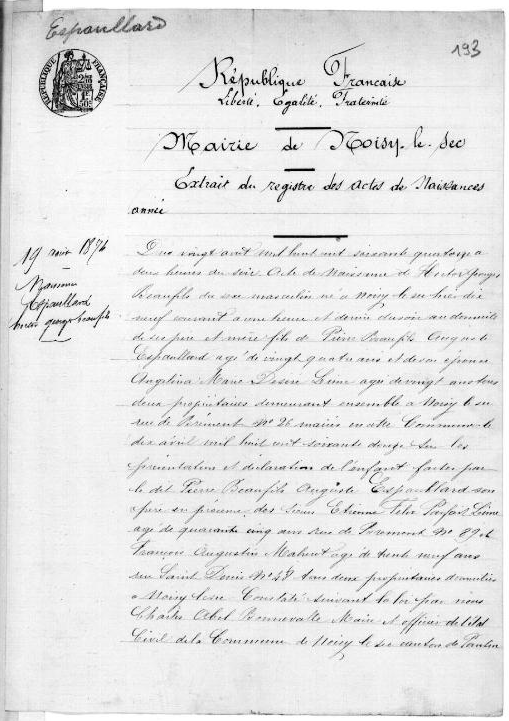 Espaullard
193
RÉPUBLIQUE FRANÇAISE
République Française
Liberté, Egalité, Fraternité
Mairie de Noisy-le-sec
Extrait du registre des actes de Naissances
année
19 avril 1874
Naissance
Espaullard
Hector georges beaufils
Du vingt avril mil huit cent soixante quatorze à
deux heures du soir Acte de Naissance de Hector georges
beaufils du sexe masculin né à Noisy le sec hier dix
neuf courant à une heure et demie du soir au domicile
de ses père et mère fils de Pierre Beaufils Auguste
Espaullard agé de vingt quatre ans et de son épouse
Angelina Marie Desirée agée de vingt ans tous
deux propriétaires demeurant ensemble à Noisy le sec
rue de N° 26 mariés en cette Commune le
dix avril mil huit cent soixante douze Sur les
présentation et déclaration de l'enfant faites par
le dit Pierre Beaufils Auguste Espaullard son
père en présence des Sieurs Etienne Felix Parfait
agé de quarante cinq ans rue de N° 89 et
François Augustin agé de trente neuf ans
rue Saint Denis N° 48 tous deux propriétaires domiciliés
à Noisy le sec Constaté suivant la loi par nous
Charles Abel Bonnevalle Maire et officier de l'état
Civil de la Commune de Noisy le sec canton de Pantin